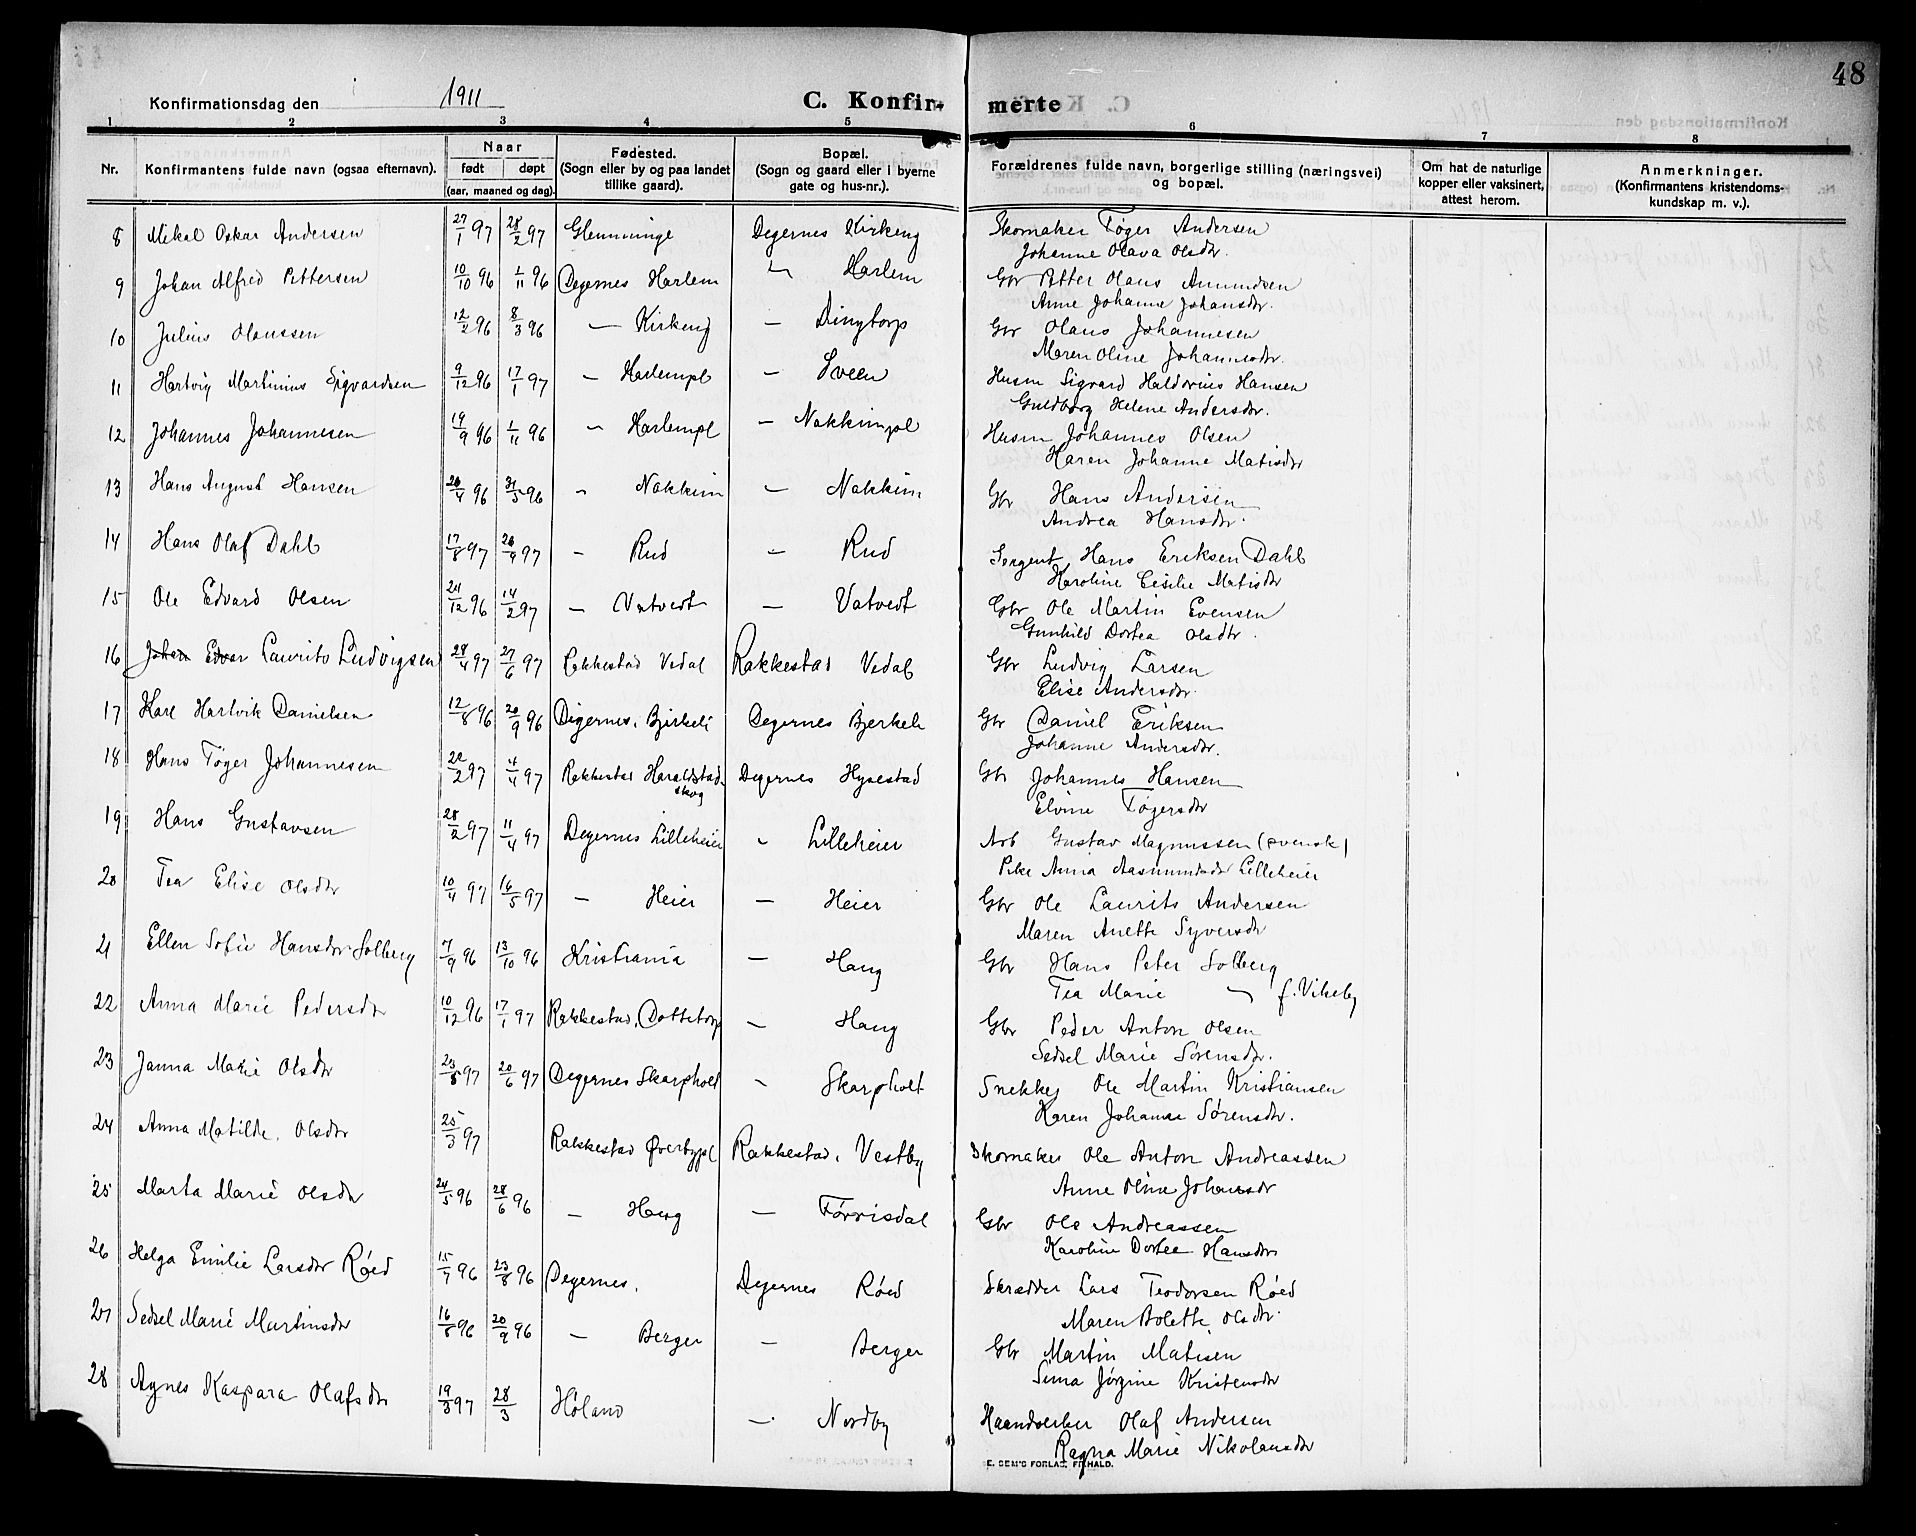 48
Konfirmationsdag den 1911 C. Konfir- merte
1 2 3 4 5 6 7 8
Nr. Konfirmantens fulde navn (ogsaa efternavn). Naar født døpt (aar, maaned og dag). Fødested. (Sogn eller by og paa landet tillike gaard). Bopæl. (Sogn og gaard eller i byerne gate og hus-nr.). Forældrenes fulde navn, borgerlige stilling (næringsvei) og bopæl. Om hat de naturlige kopper eller vaksinert, attest herom. Anmerkninger. (Konfirmantens kristendoms- kundskap m. v.).
8 Mikal Oskar Andersen 27/1 97 28/2 97 Glemminge Degernes Kirkeng Skomaker Tøger Andersen
Johanne Olava Olsdtr.
9 Johan Alfred Pettersen 10/10 96 1/11 96 Degernes Harlem " Harlem Gbr Petter Olaus Amundsen
Anne Johanne Johansdtr.
10 Julius Olaussen 12/2 96 8/3 96 — Kirkeng — Dingtorp Gbr Olaus Johannesen
Maren Oline Johannesdtr.
11 Hartvig Martinius Sigvardsen 9/12 96 17/1 97 — Harlempl — Sveen Husm Sigvard Haldorius Hansen
Guldborg Helene Andersdtr.
12 Johannes Johannesen 19/9 96 1/11 96 — Harlempl — Nakkimpl Husm Johannes Olsen
Karen Johanne Matisdtr
13 Hans August Hansen 26/4 96 31/5 96 — Nakkim — Nakkim Gbr Hans Andersen
Andrea Hansdtr.
14 Hans Olaf Dahl 17/8 97 26/9 97 — Rud — Rud Sergent Hans Eriksen Dahl
Karoline Cesilie Matisdtr
15 Ole Edvard Olsen 24/12 96 14/2 97 — Vatvedt — Vatvedt Gbr Ole Martin Evensen
Gunhild Dortea Olsdtr.
16 Johan Edvar Laurits Ludvigsen 28/4 97 27/6 97 Rakkestad Vedal Rakkestad Vedal Gbr Ludvig Larsen
Elise Andersdtr.
17 Karl Hartvik Danielsen 12/8 96 20/9 96 Degernes, Bjerkeli Degernes Bjerkeli Gbr Daniel Eriksen
Johanne Andersdtr.
18 Hans Tøger Johannesen 22/2 97 4/4 97 Rakkestad Haraldstad- Degernes Hysestad Gbr Johannes Hansen
skog Elvine Tøgersdtr
19 Hans Gustavsen 28/2 97 11/4 97 Degernes Lilleheier — Lilleheier Arb Gustav Magnussen (svensk)
Pike Anna Aasmundsdtr Lilleheier
20 Tea Elise Olsdtr 10/4 97 16/5 97 — Heier — Heier Gbr Ole Laurits Andersen
Maren Anette Syversdtr
21 Ellen Sofie Hansdtr Solberg 7/9 96 13/10 96 Kristiania — Haug Gbr Hans Peter Solberg
Tea Marie — f. Vikeby
22 Anna Marie Pedersdtr 10/12 96 17/1 97 Rakkestad, Dottetorp — Haug Gbr Peder Anton Olsen
Sedsel Marie Sørensdtr.
23 Janna Marie Olsdtr 23/5 97 20/6 97 Degernes Skarpholt — Skarpholt Snekker Ole Martin Kristiansen
Karen Johanne Sørensdtr.
24 Anna Matilde Olsdtr 25/3 97 Rakkestad Øverbypl Rakkestad, Vestby Skomaker Ole Anton Andreassen
Anne Oline Johansdtr
25 Marta Marie Olsdtr 24/5 96 28/6 96 — Haug — Førrisdal Gbr Ole Andreassen
Karoline Dortea Hansdtr
26 Helga Emilie Larsdtr Røed 15/7 96 23/8 96 Degernes. Degernes Røed Skrædder Lars Teodorsen Røed
Maren Bolette Olsdtr.
27 Sedsel Marie Martinsdtr 16/8 96 20/9 96 — Berger — Berger Gbr Martin Matisen
Sina Jørgine Kristensdtr
28 Agnes Kaspara Olafsdtr 19/3 97 28/3 Høland — Nordby Haandverker Olaf Andersen
Ragna Marie Nikolaisdtr
E. SEM'S FORLAG, FR.HALD.